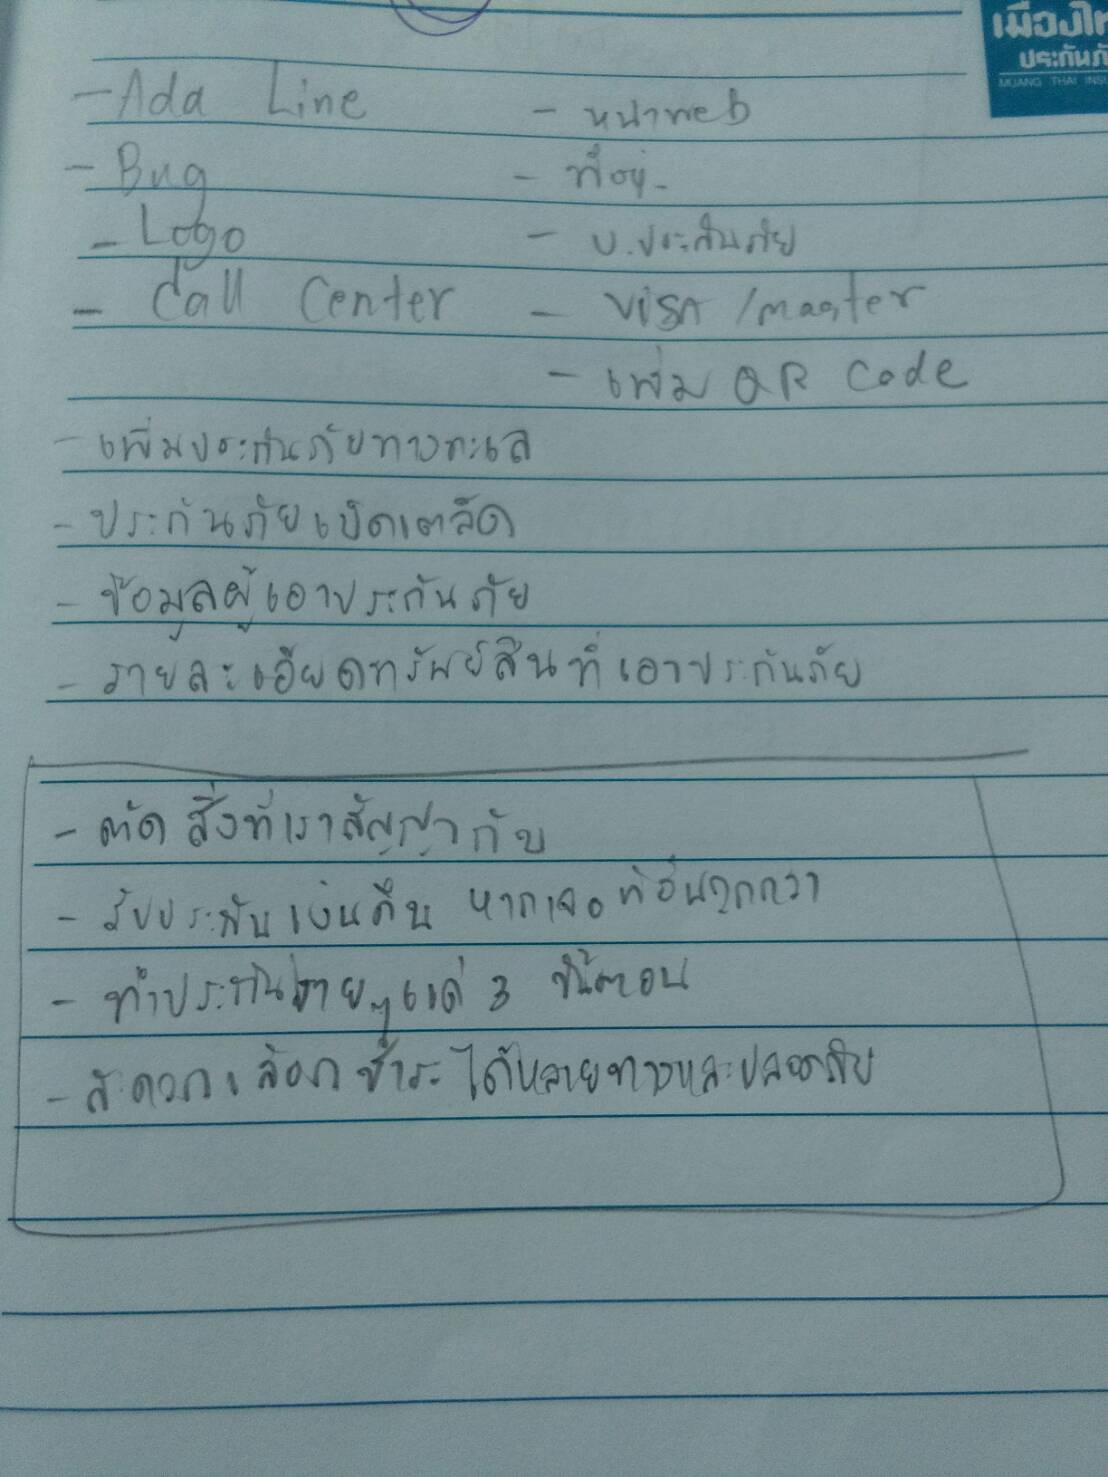 เมืองไท
ประกันภั
MUANG THAI INSU
- Ada Line - หน้าweb
- Bug - ที่อยู่
- Logo - บ.ประกันภัย
- Call Center - VISA / master
- เพิ่ม QR Code
- เพิ่มประกันภัยทางทะเล
- ประกันภัยเบ็ดเตล็ด
- ข้อมูลผู้เอาประกันภัย
- รายละเอียดทรัพย์สินที่เอาประกันภัย
- ตัด สิ่งที่เราสัญญากับ
- รับประกัน เงินคืน หากเจอที่อื่นถูกกว่า
- ทำประกันง่ายๆแค่ 3 ขั้นตอน
- สะดวกเลือกชำระได้หลายทางและปลอดภัย